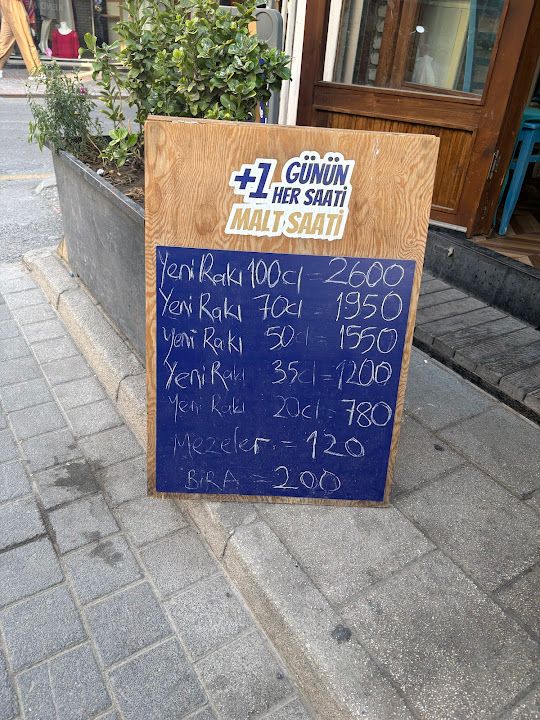 +1 GÜNÜN
HER SAATİ
MALT SAATİ
Yeni Rakı 100cl = 2600
Yeni Rakı 70cl = 1950
Yeni Rakı 50cl = 1550
Yeni Rakı 35cl = 1200
Yeni Rakı 20cl = 780
Mezeler = 120
BİRA = 200